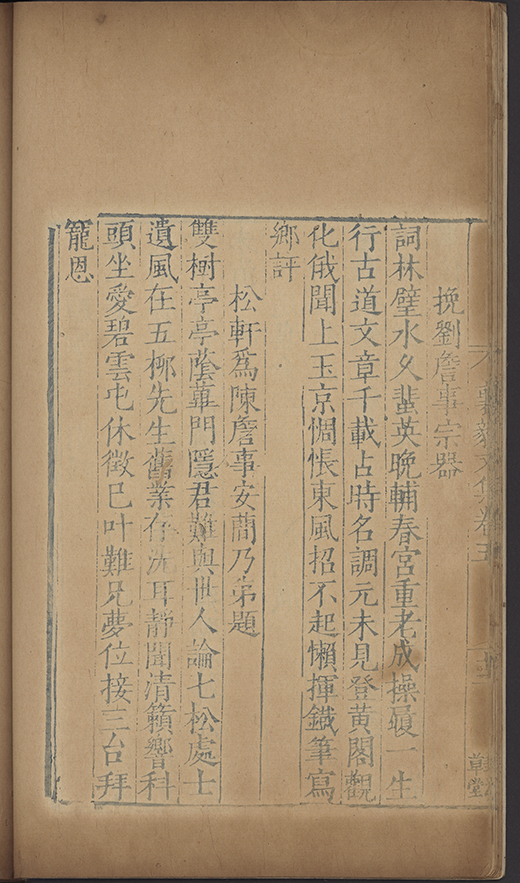 挽劉詹事宗器
詞林璧水久蜚英晚輔春宮重老成操履一生
行古道文章千載占時名調元未見登黃閣觀
化俄聞上玉京惆悵東風招不起懶揮鐵筆寫
鄉評
松軒為陳詹事安蕳乃弟題
雙樹亭亭蔭蓽門隱君難與世人論七松處士
遺風在五柳先生舊業存洗耳靜聞清籟響科
頭坐愛碧雲屯休徵已叶難兄夢位接三台拜
寵恩
卷五
草堂